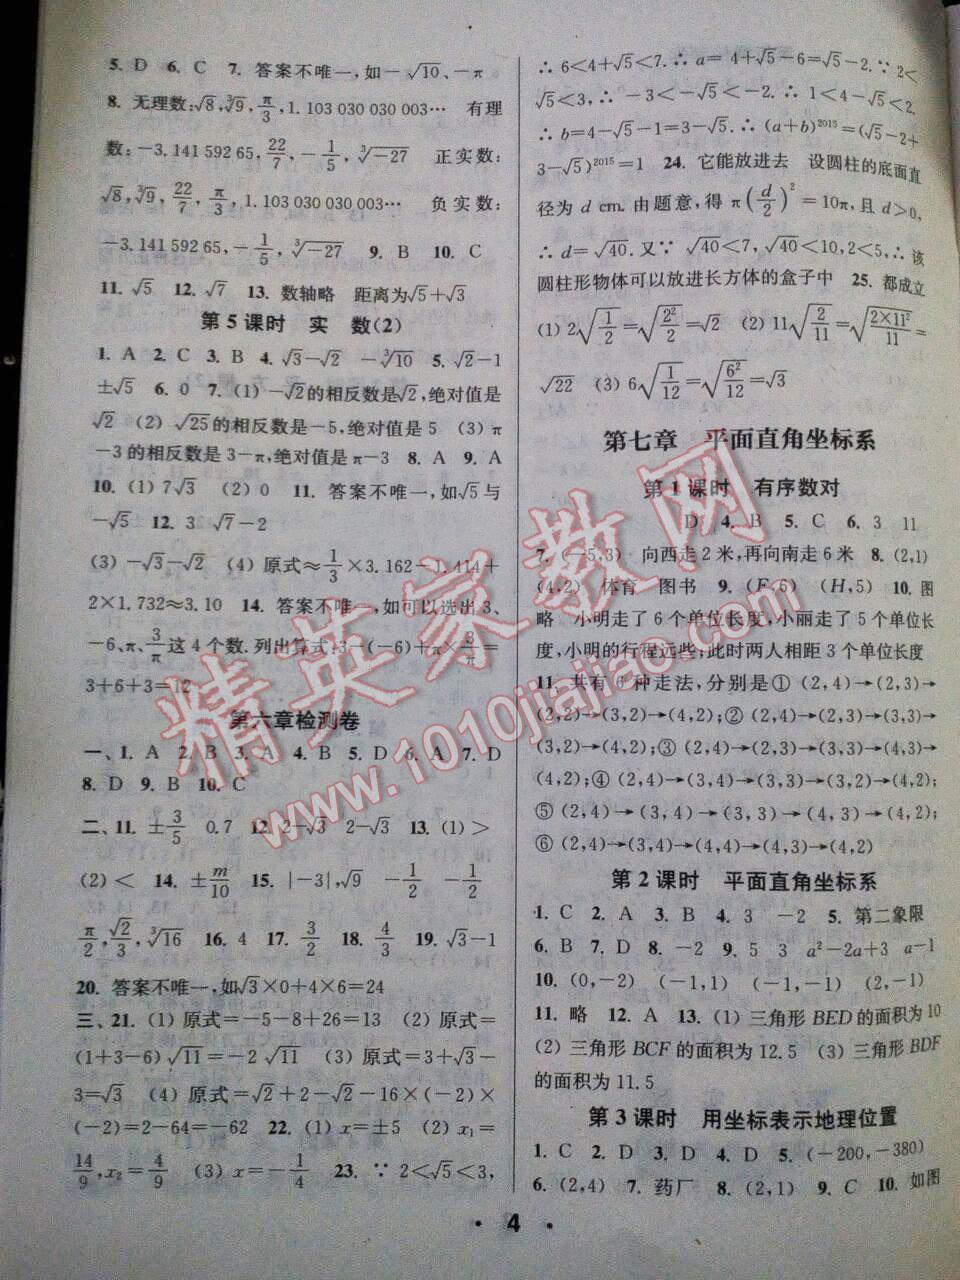 5. D 6. C 7. 答案不唯一,如-√10、-π
8. 无理数:√8,∛9,π/3,1.103 030 030 003… 有理
数:-3.141 592 65,22/7,-1/5,∛-27 正实数:
√8,∛9,22/7,π/3,1.103 030 030 003… 负实数:
-3.141 592 65,-1/5,∛-27 9. B 10. C
11. √5 12. √7 13. 数轴略 距离为√5+√3
第 5 课时 实 数(2)
1. A 2. C 3. B 4. √3-√2 -∛10 5. √2-1
±√5 6. 0 7. (1) -√2的相反数是√2,绝对值是
√2 (2) √25的相反数是-5,绝对值是 5 (3) π
-3的相反数是 3-π,绝对值是 π-3 8. A 9. A
10. (1) 7√3 (2) 0 11. 答案不唯一,如√5与
-√5 12. 3 √7-2
(3) -√3-√2 (4) 原式≈1/3×3.162-1.414+
2×1.732≈3.10 14. 答案不唯一,如可以选出 3、
-6、π、3/π这 4 个数.列出算式:3-(-6)+π×3/π=
3+6+3=12
第六章检测卷
一、1. A 2. B 3. A 4. B 5. D 6. A 7. D
8. D 9. B 10. C
二、11. ±3/5 0.7 12. 2-√3 2-√3 13. (1) >
(2) < 14. ±m/10 15. |-3|,√9 -1/2 -1/2
π/2,√2/3,∛16 16. 4 17. 3/2 18. 4/3 19. √3-1
20. 答案不唯一,如√3×0+4×6=24
三、21. (1) 原式=-5-8+26=13 (2) 原式=
(1+3-6)√11=-2√11 (3) 原式=3+√3-
3=√3 (4) 原式=√2+2-√2-16×(-2)×
(-2)=2-64=-62 22. (1) x=±5 (2) x₁=
14/9,x₂=4/9 (3) x=-1/4 23. ∵ 2<√5<3,
∴ 6<4+√5<7. ∴ a=4+√5-6=√5-2. ∵ 2<
√5<3,∴ -3<-√5<-2. ∴ 1<4-√5<2.
∴ b=4-√5-1=3-√5. ∴ (a+b)²⁰¹⁵=(√5-2+
3-√5)²⁰¹⁵=1 24. 它能放进去 设圆柱的底面直
径为 d cm. 由题意,得 π(d/2)²=10π,且 d>0,
∴ d=√40. 又∵ √40<7,√40<10,2<5,∴ 该
圆柱形物体可以放进长方体的盒子中 25. 都成立
(1) 2√(1/2)=√(2²/2)=√2 (2) 11√(2/11)=√(2×11²/11)=
√22 (3) 6√(1/12)=√(6²/12)=√3
第七章 平面直角坐标系
第 1 课时 有序数对
D 4. B 5. C 6. 3 11
7. (-5,3) 向西走 2 米,再向南走 6 米 8. (2,1)
(4,2) 体育 图书 9. (F,6) (H,5) 10. 图
略 小明走了 6 个单位长度,小丽走了 5 个单位长
度,小明的行程远些;此时两人相距 3 个单位长度
11. 共有 6 种走法,分别是① (2,4)→(2,3)→
(2,2)→(3,2)→(4,2);② (2,4)→(2,3)→(3,3)→
(3,2)→(4,2);③ (2,4)→(2,3)→(3,3)→(4,3)→
(4,2);④ (2,4)→(3,4)→(3,3)→(3,2)→(4,2);
⑤ (2,4)→(3,4)→(3,3)→(4,3)→(4,2);
⑥ (2,4)→(3,4)→(4,4)→(4,3)→(4,2)
第 2 课时 平面直角坐标系
1. C 2. A 3. B 4. 3 -2 5. 第二象限
6. B 7. D 8. -2 9. 5 3 a²-2a+3 a-1
10. (0,-2) (-1,1) (-1,-1) (2,-1)
11. 略 12. A 13. (1) 三角形 BED 的面积为 10
(2) 三角形 BCF 的面积为 12.5 (3) 三角形 BDF
的面积为 11.5
第 3 课时 用坐标表示地理位置
1. C 2. D 3. D 4. D 5. (-200,-380)
6. (2,4) 7. 药厂 8. (2,1) 9. C 10. 如图
• 4 •
精英家教网
www.1010jiajiao.com